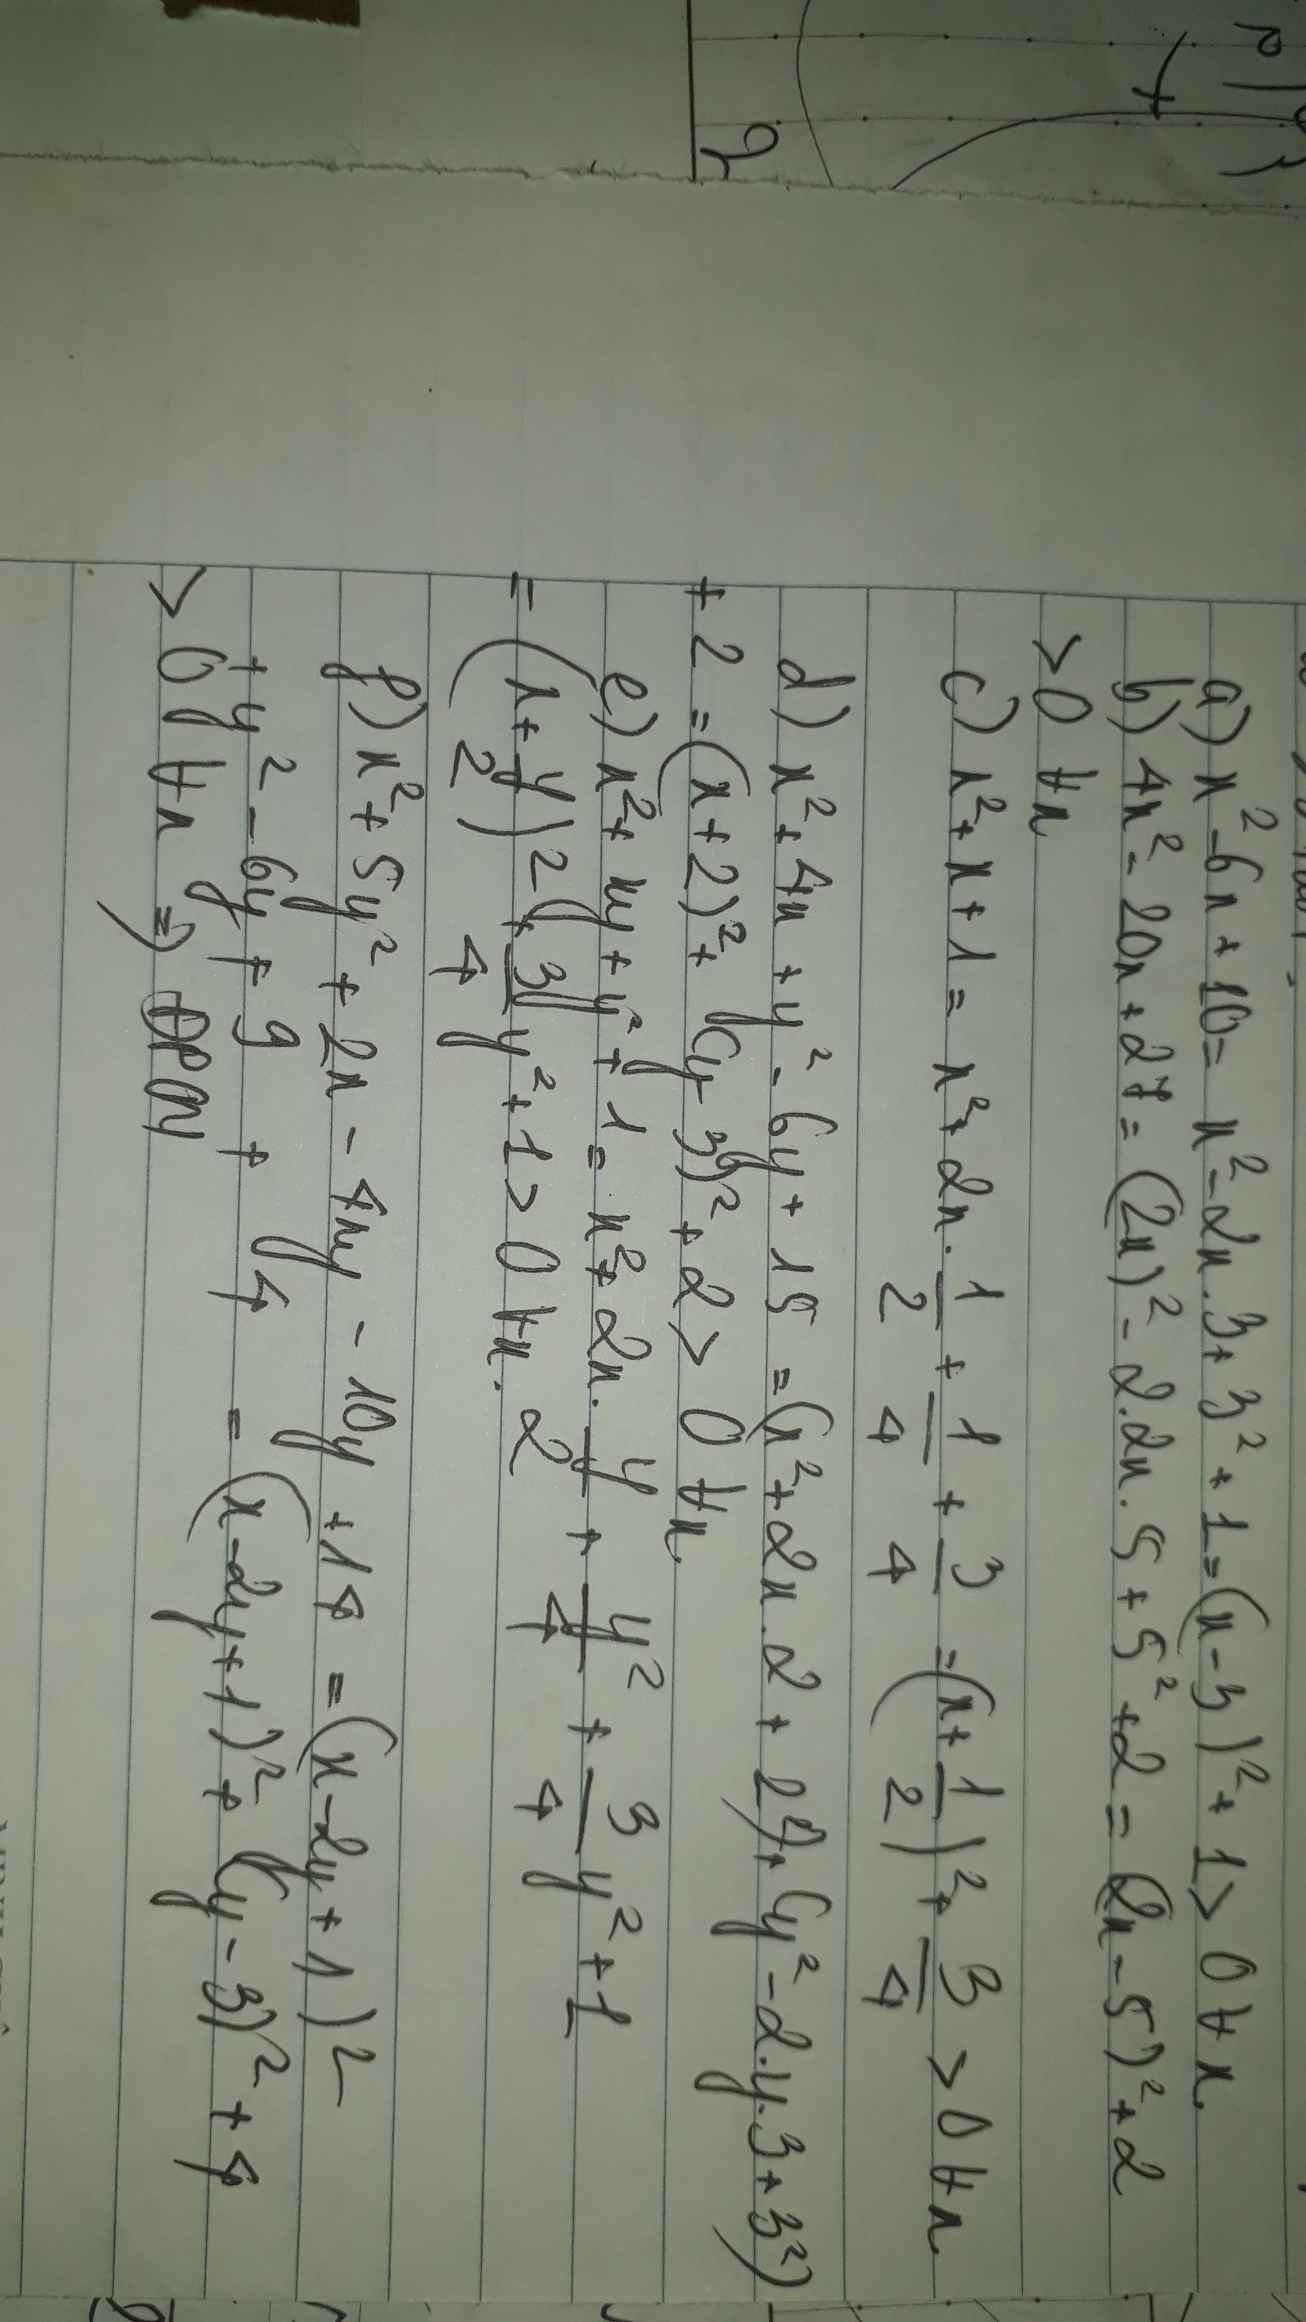 a) x² - 6x + 10 = x² - 2x . 3 + 3² + 1 = (x - 3)² + 1 > 0 ∀x.
b) 4x² - 20x + 27 = (2x)² - 2.2x.5 + 5² + 2 = (2x - 5)² + 2
> 0 ∀x
c) x² + x + 1 = x² + 2x . 1/2 + 1/4 + 3/4 = (x + 1/2)² + 3/4 > 0 ∀x.
d) x² + 4x + y² - 6y + 15 = (x² + 2x.2 + 2²) + (y² - 2.y.3 + 3²)
+ 2 = (x + 2)² + (y - 3)² + 2 > 0 ∀x.
e) x² + xy + y² + 1 = x² + 2x . y/2 + y²/4 + 3/4 y² + 1
= (x + y/2)² + 3/4 y² + 1 > 0 ∀x.
f) x² + 5y² + 2x - 4xy - 10y + 14 = (x - 2y + 1)²
+ y² - 6y + 9 + 4 = (x - 2y + 1)² + (y - 3)² + 4
> 0 ∀x => ĐPCM